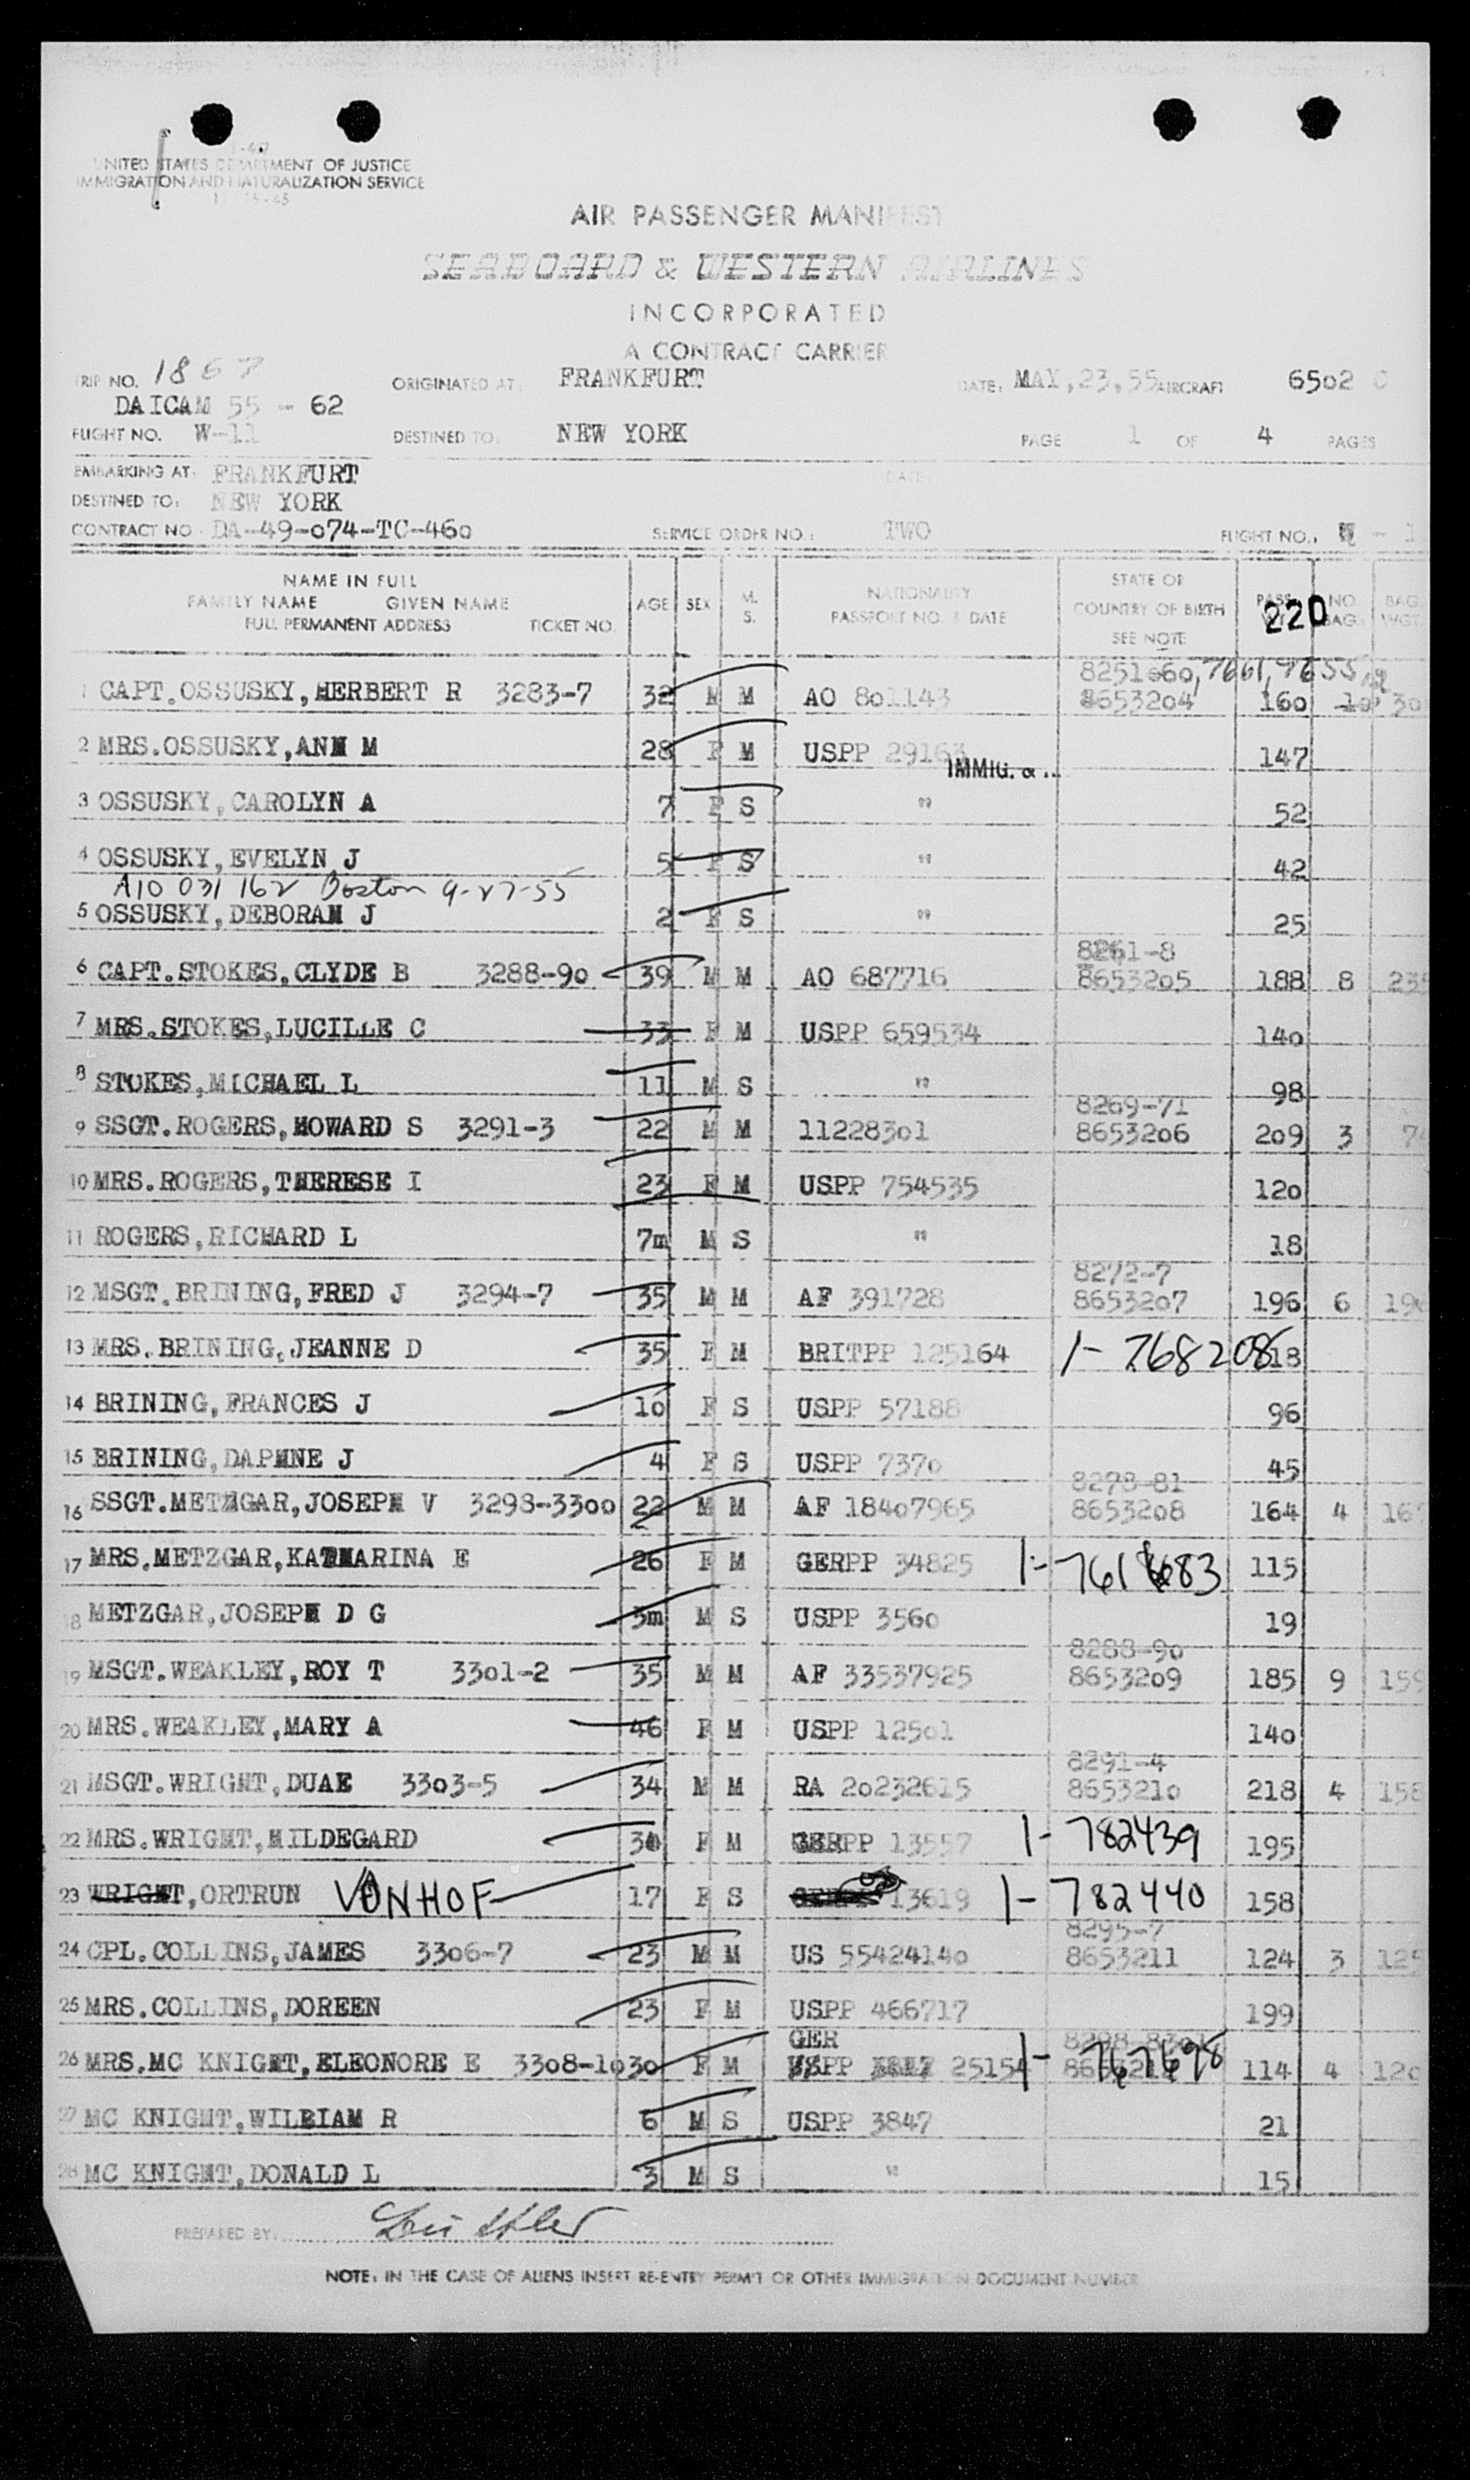 UNITED STATES DEPARTMENT OF JUSTICE
IMMIGRATION AND NATURALIZATION SERVICE
AIR PASSENGER MANIFEST
SEABOARD & WESTERN AIRLINES
INCORPORATED
A CONTRACT CARRIER
TRIP NO. 1867 ORIGINATED AT: FRANKFURT DATE: MAY,23,55 AIRCRAFT 6502 C
DAICAM 55 - 62
FLIGHT NO. W-11 DESTINED TO: NEW YORK PAGE 1 OF 4 PAGES
EMBARKING AT: FRANKFURT DATE:
DESTINED TO: NEW YORK
CONTRACT NO. DA-49-074-TC-460 SERVICE ORDER NO.: TWO FLIGHT NO.: W - 1
NAME IN FULL
FAMILY NAME GIVEN NAME
FULL PERMANENT ADDRESS TICKET NO. AGE SEX M. S. NATIONALITY PASSPORT NO. & DATE STATE OR COUNTRY OF BIRTH SEE NOTE PASS. WT. NO. BAG. BAG. WGT.
220
8251-60, 7661, 7655
1 CAPT.OSSUSKY,HERBERT R 3283-7 32 M M AO 801143 8653204 160 10 30
2 MRS.OSSUSKY,ANN M 28 F M USPP 29163 147
IMMIG. &
3 OSSUSKY,CAROLYN A 7 F S " 52
4 OSSUSKY,EVELYN J 5 F S " 42
A10 031 162 Boston 9-27-55
5 OSSUSKY,DEBORAH J 2 F S " 25
8261-8
6 CAPT.STOKES,CLYDE B 3288-90 39 M M AO 687716 8653205 188 8 235
7 MRS.STOKES,LUCILLE C 33 F M USPP 659534 140
8 STOKES,MICHAEL L 11 M S " 98
8269-71
9 SSGT.ROGERS,HOWARD S 3291-3 22 M M 11228301 8653206 209 3 7
10 MRS.ROGERS,THERESE I 23 F M USPP 754535 120
11 ROGERS,RICHARD L 7m M S " 18
8272-7
12 MSGT.BRINING,FRED J 3294-7 35 M M AF 391728 8653207 196 6 19
13 MRS.BRINING,JEANNE D 35 F M BRITPP 125164 1- 768208 18
14 BRINING,FRANCES J 10 F S USPP 57188 96
15 BRINING,DAPHNE J 4 F S USPP 7370 45
8278-81
16 SSGT.METZGAR,JOSEPH V 3298-3300 22 M M AF 18407965 8653208 164 4 16
17 MRS.METZGAR,KATHARINA E 26 F M GERPP 34825 1- 7618683 115
18 METZGAR,JOSEPH D G 3m M S USPP 3560 19
8288-90
19 MSGT.WEAKLEY,ROY T 3301-2 35 M M AF 33537925 8653209 185 9 159
20 MRS.WEAKLEY,MARY A 46 F M USPP 12501 140
8291-4
21 MSGT.WRIGHT,DUAE 3303-5 34 M M RA 20232615 8653210 218 4 158
22 MRS.WRIGHT,HILDEGARD 30 F M GERPP 13557 1- 782439 195
23 WRIGHT,ORTRUN VONHOF 17 F S 13619 1- 782440 158
8295-7
24 CPL.COLLINS,JAMES 3306-7 23 M M US 55424140 8653211 124 3 125
25 MRS.COLLINS,DOREEN 23 F M USPP 466717 199
GER 8298-8301
26 MRS.MC KNIGHT,ELEONORE E 3308-10 30 F M PP 25154 1- 767698 865321 114 4 120
27 MC KNIGHT,WILLIAM R 6 M S USPP 3847 21
28 MC KNIGHT,DONALD L 3 M S " 15
PREPARED BY:
NOTE: IN THE CASE OF ALIENS INSERT RE-ENTRY PERMIT OR OTHER IMMIGRATION DOCUMENT NUMBER